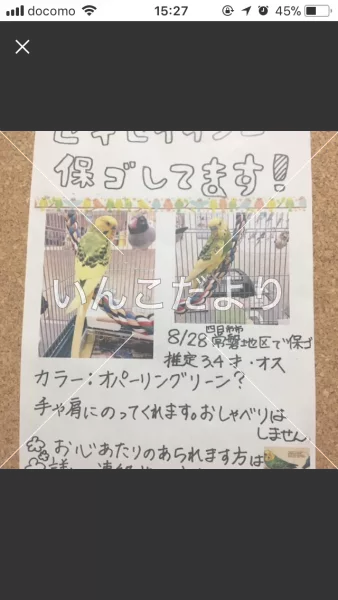 docomo 15:27 45%
セキセイインコ
保ゴしてます!
いんこだより
8/28 四日市市常磐地区で保ゴ
推定3,4才・オス
カラー:オパーリングリーン?
手や肩にのってくれます。おしゃべりは
しません
お心あたりのあられます方は